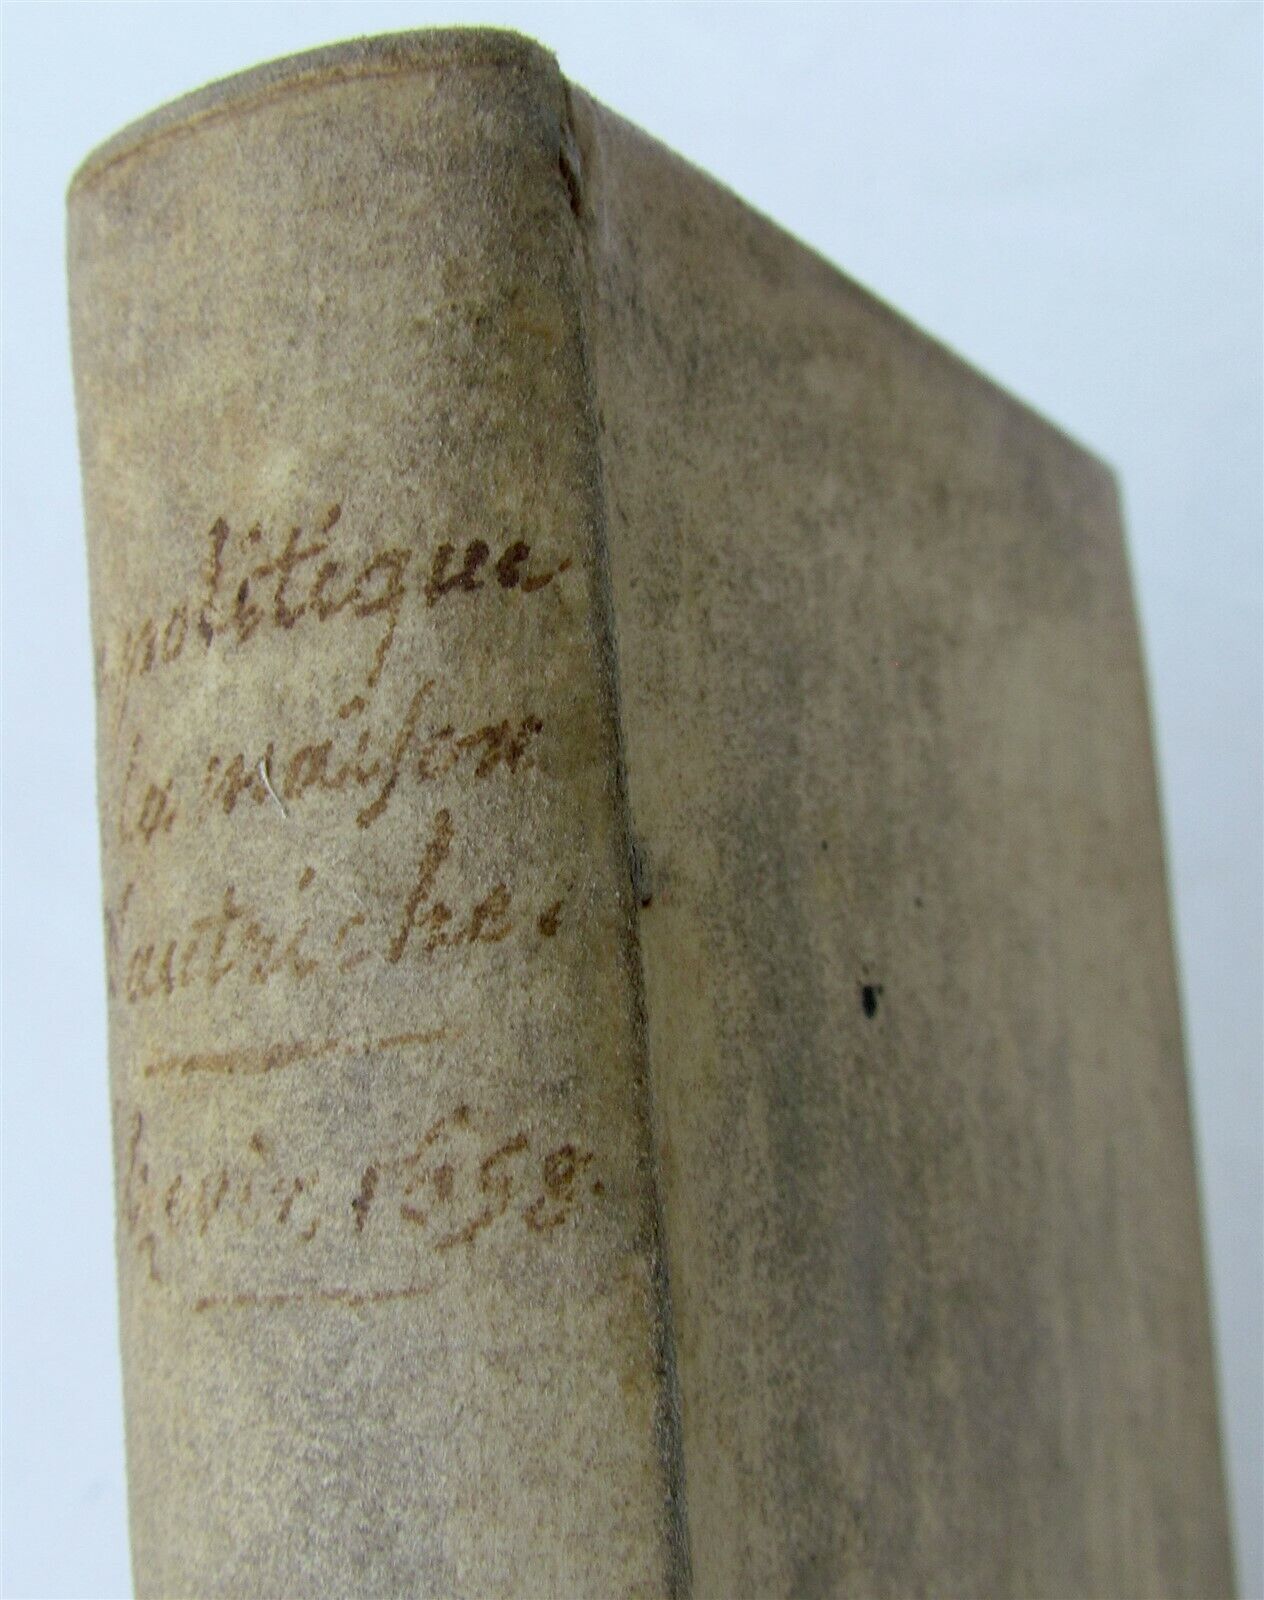 politique
la maison
d'autriche.
1658.